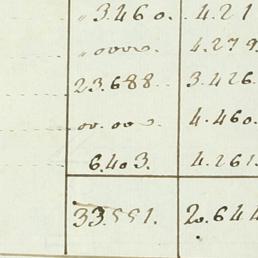 „ 3.460. 4.21
„ 0000. 4.279
23.688. 3.426.
00.000. 4.460.
6.403. 4.261.
33.551. 20.644